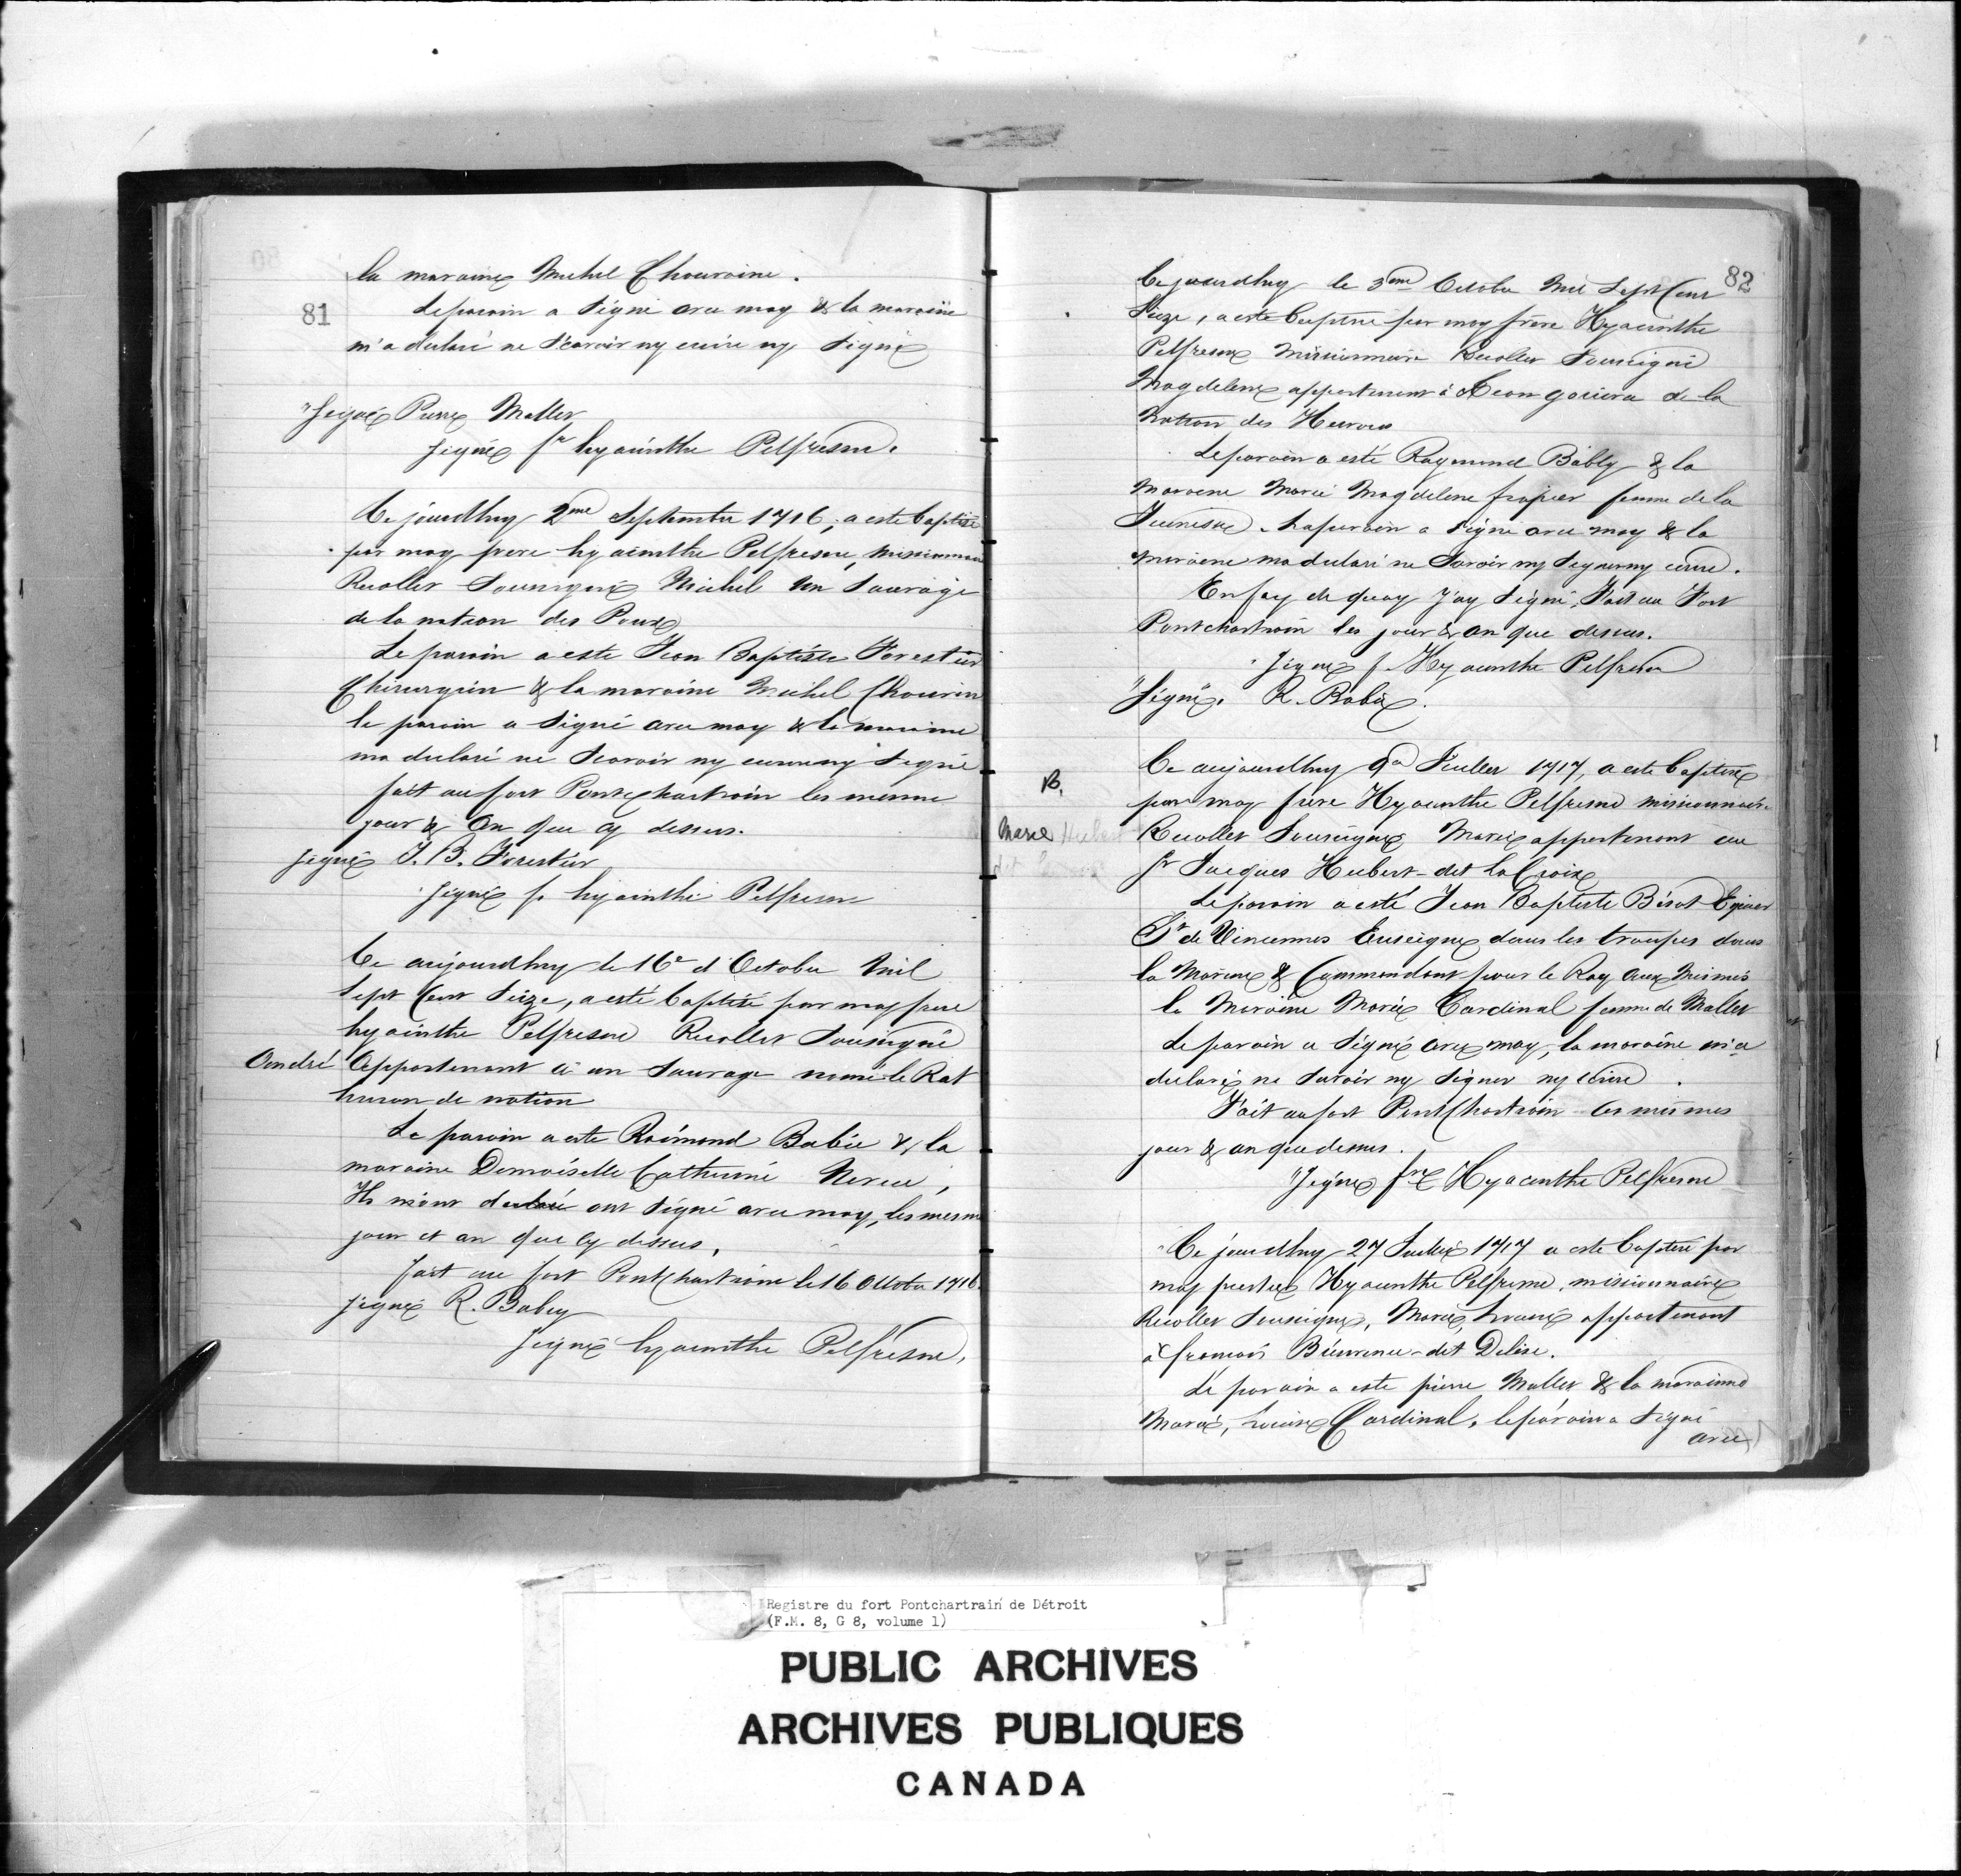 la maraine Michel Chouroine.
81
Le parain a signé avec moy & la maraine
m'a declaré ne scavoir ny ecrire ny signé
"signé Pierre Mallet
signé fr hyacinthe Pelfresne.
Ce jourdhuy 2me Septembre 1716, a esté baptisé
par moy frere hyacinthe Pelfresne, missionnaire
Recollet Soussigné Michel un Sauvage
de la nation des Poux
Le parain a este Jean Baptiste Forestier
Chirurgien & la maraine Michel Chourin
le parain a signé avec moy & la maraine
ma declaré ne scavoir ny ecrire ny signé
fait au fort Pontchartrain les mesme
jour & an que cy dessus.
signé J. B. Forestier
signé f. hyacinthe Pelfresne
Ce aujourdhuy le 16e d'Octobre Mil
Sept Cent Seize, a esté baptisé par moy frere
hyacinthe Pelfresne Recollet Soussigné
André Appartenant à un Sauvage nomé le Rat
huron de nation
Le parain a este Raimond Babie & la
maraine Demoiselle Catherine
Ils m'ont declaré ont signé avec moy, les mesme
jour et an que cy dessus.
fait au fort Pontchartrain le 16 Octobre 1716.
signé R. Babey
signé hyacinthe Pelfresne.
82
Ce jourdhuy le 3me Octobre Mil Sept Cent
Seize, a esté baptisé par moy frere Hyacinthe
Pelfresne Missionnaire Recollet Soussigné
Magdelene appartenant à de la
Nation des Hurons
Le parain a esté Raymond Babby & la
Maraine Marie Magdelene frapier femme de la
Jeunesse. Le parain a signé avec moy & la
maraine ma declaré ne savoir ny signer ny ecrire.
En foy de quoy J'ay signé, Fait au Fort
Pontchartrain les jour & an que dessus.
signé f. Hyacinthe Pelfresne
"Signé". R. Babie.
B.
Marie Hubert
dit
Ce aujourdhuy 9e Juillet 1717, a este baptisé
par moy frere Hyacinthe Pelfresne missionnaire
Recollet Soussigné Marie appartenant au
Sr Jacques Hubert dit la Croix
Le parain a esté Jean Baptiste Bisot Eqnier
Sr de Vincennes Enseigne dans les troupes dans
la Marine & Commendant pour le Roy aux Miamis
la Maraine Marie Cardinal femme de Mallet
Le parain a signé avec moy, la maraine m'a
declaré ne savoir ny signer ny ecrire.
Fait au fort Pontchartrain les mesmes
jour & an que dessus.
"Signé fre Hyacinthe Pelfresne
Ce jourdhuy 27 Juillet 1717 a este baptisé par
moy Hyacinthe Pelfresne, missionnaire
Recollet Soussigné, Marie, Louise appartenant
à francois Bienvenue dit Delise.
Le parain a este pierre Mallet & la maraine
Marie, Louise Cardinal. le parain a signé
avec
Registre du fort Pontchartrain de Détroit
(F.M. 8, G 8, volume 1)
PUBLIC ARCHIVES
ARCHIVES PUBLIQUES
CANADA